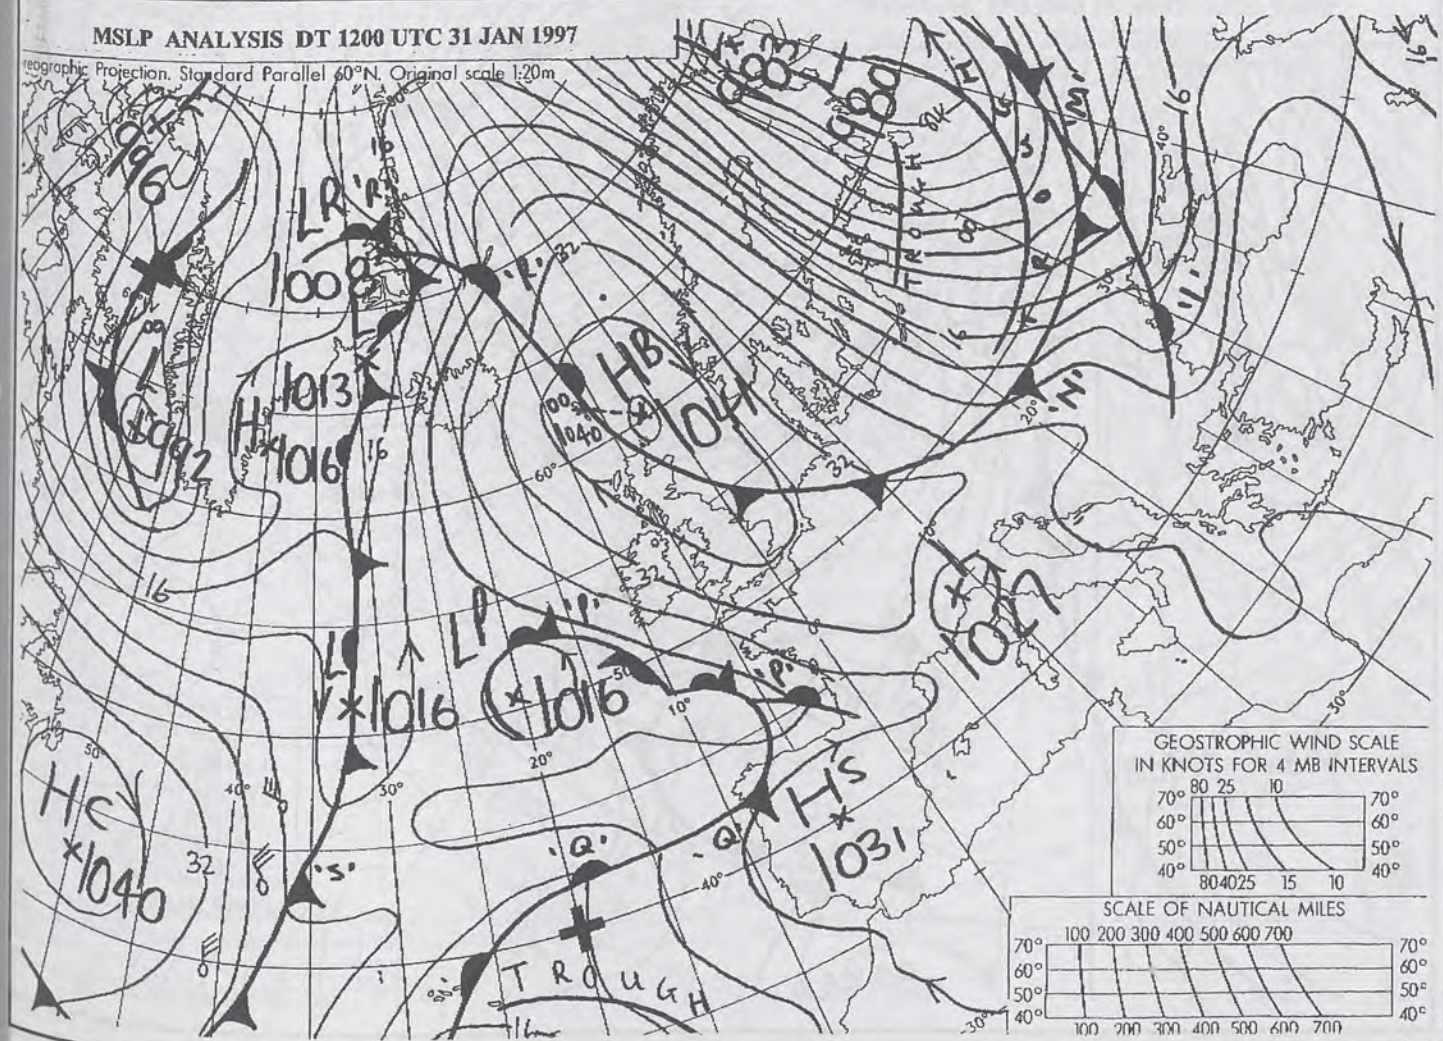 MSLP ANALYSIS DT 1200 UTC 31 JAN 1997
reographic Projection. Standard Parallel 60°N. Original scale 1:20m
983
980
996
16
LR 'R'
1008
'R'
32
TROUGH
00
16
'M'
M
16
40°
30°
'I'
L
1013
H
1016
16
L
992
HB
1041
1040
60°
32
20°
'N'
16
32
LP 'P'
1016
50°
'P'
10°
0°
1027
LV
1016
20°
50°
40°
30°
HC
1040
32
'S'
'Q'
'Q'
40°
HS
1031
TROUGH
30°
30°
GEOSTROPHIC WIND SCALE
IN KNOTS FOR 4 MB INTERVALS
80 25 10
70° 70°
60° 60°
50° 50°
40° 40°
80 40 25 15 10
SCALE OF NAUTICAL MILES
100 200 300 400 500 600 700
70° 70°
60° 60°
50° 50°
40° 40°
100 200 300 400 500 600 700